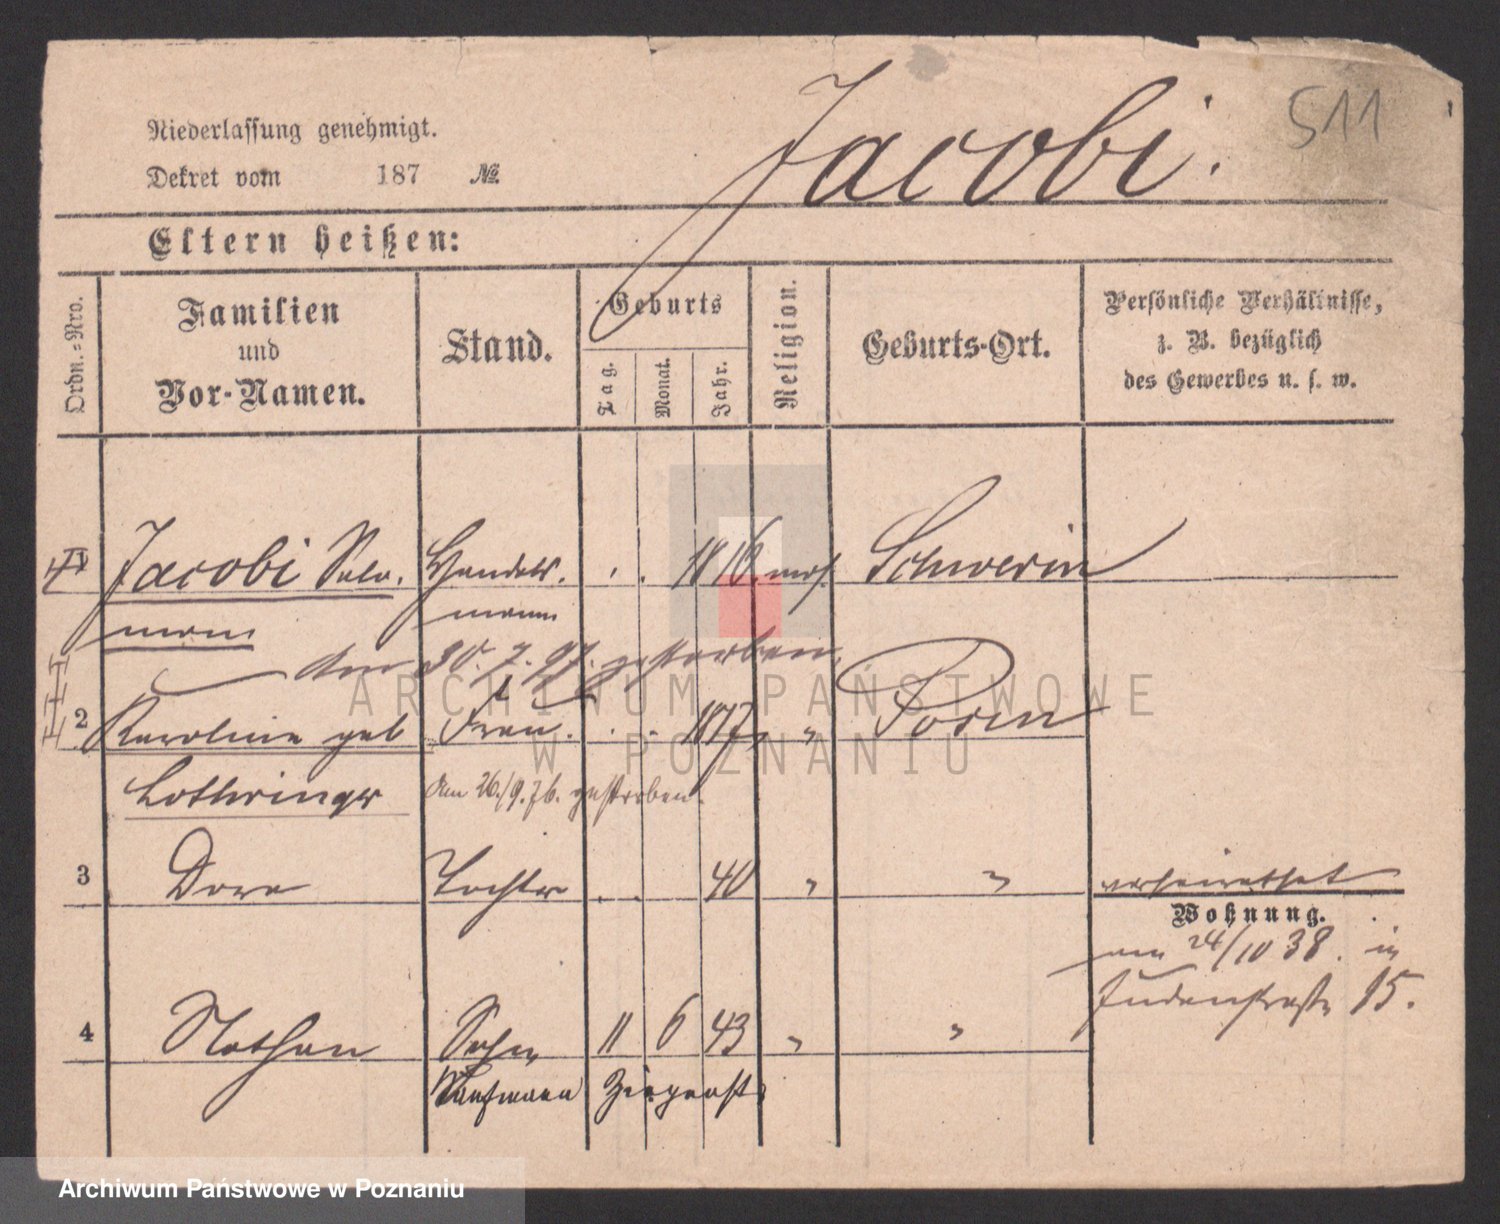 511
Jacobi.
Niederlassung genehmigt.
Dekret vom 187 №.
Eltern heißen:
Ordn.=Nro.
Familien und Vor-Namen.
Stand.
Geburts
Tag. Monat. Jahr.
Religion.
Geburts-Ort.
Persönliche Verhältnisse, z. B. bezüglich des Gewerbes u. s. w.
Jacobi Salo- Handels- 1816 mos. Schwerin
mon mann
den 30. 7. gestorben.
2 Karoline geb Frau. " Posen
Lothringer den 26/9.76. gestorben.
3 Dora Tochter 40 " " verheirathet
Wohnung.
24/10 38. in
Judenstraße 15.
4 Nathan Sohn 11 6 43 " "
Kaufmann
ARCHIWUM PAŃSTWOWE
W POZNANIU
Archiwum Państwowe w Poznaniu